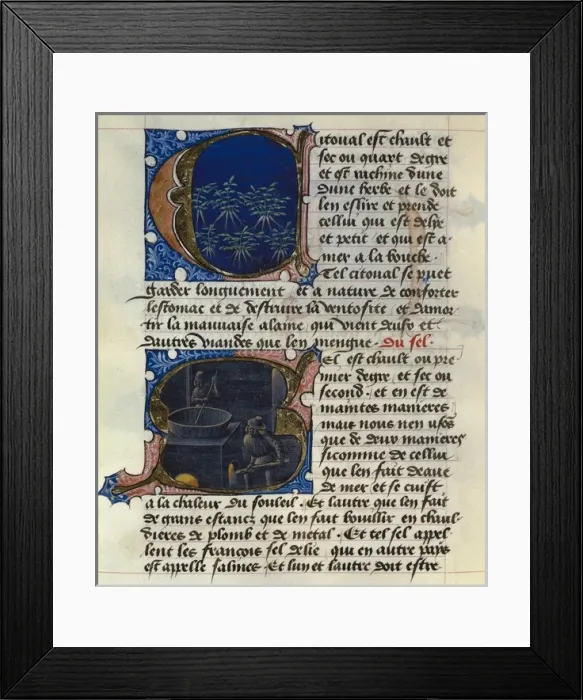 itoual est chault et
sec ou quart degre
et est rachine dune
dune herbe et le doit
len eslire et prendre
cellui qui est delye
et petit et qui est a-
mer a la bouche.
Tel citoual se puet
garder longuement et a nature de conforter
lestomac et de destruire la ventosite et damor-
tir la mauuaise alaine qui vient et
dautres viandes que len mengue. Du sel.
El est chault ou pre-
mier degre et sec ou
second. et en est de
maintes manieres
mais nous nen usõs
que de deux manieres
sicomme de cellui
que len fait deaue
de mer et se cuist
a la chaleur du souleil. Et lautre que len fait
de grans estancz que len fait boullir en chaul-
dieres de plomb et de metal. Et tel sel appel-
lent les francois sel delie qui en autre pays
est appelle salines. Et lun et lautre doit estre